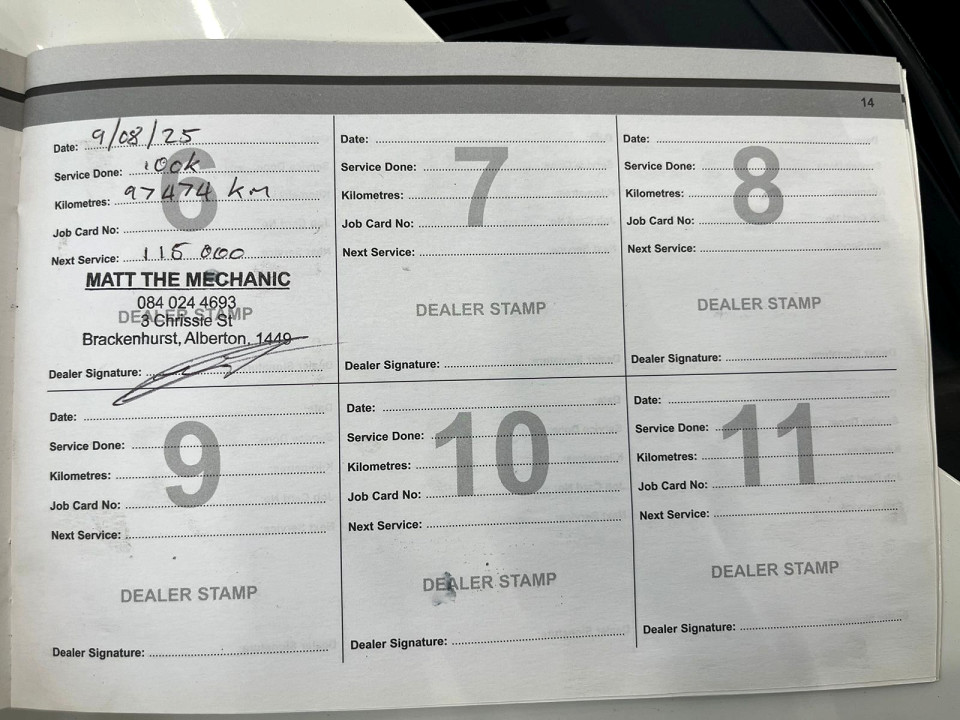 14
Date: 9/08/25
Service Done: 100k
Kilometres: 97474 km
Job Card No:
Next Service: 115 000
6
MATT THE MECHANIC
084 024 4693
DEALER STAMP
3 Chrissie St
Brackenhurst, Alberton, 1449
Dealer Signature:
Date:
Service Done:
Kilometres:
Job Card No:
Next Service:
7
DEALER STAMP
Dealer Signature:
Date:
Service Done:
Kilometres:
Job Card No:
Next Service:
8
DEALER STAMP
Dealer Signature:
Date:
Service Done:
Kilometres:
Job Card No:
Next Service:
9
DEALER STAMP
Dealer Signature:
Date:
Service Done:
Kilometres:
Job Card No:
Next Service:
10
DEALER STAMP
Dealer Signature:
Date:
Service Done:
Kilometres:
Job Card No:
Next Service:
11
DEALER STAMP
Dealer Signature: